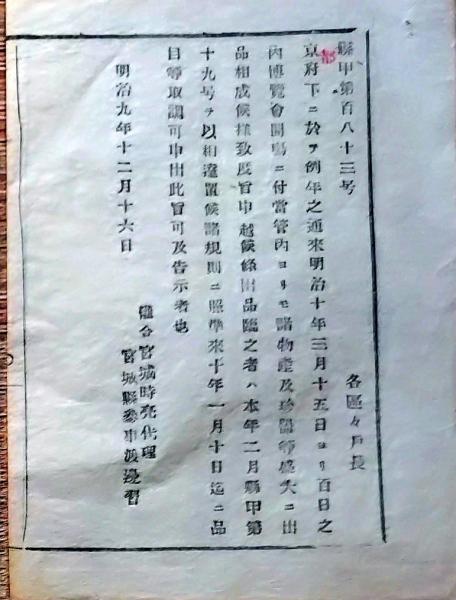 縣甲第百八十三号
各區々戸長
都
京府下ニ於テ例年之通來明治十年三月十五日ヨリ百日之
內博覽會開塲ニ付當管內ヨリモ諸物產及珍噐等盛大ニ出
品相成候樣致度旨申越候條出品臨之者ハ本年二月縣甲第
十九号ヲ以相達置候諸規則ニ照準來十年一月十日迄ニ品
目等取調可申出此旨可及告示者也
明治九年十二月十六日
權令宮城時亮代理
宮城縣參事渡邊習